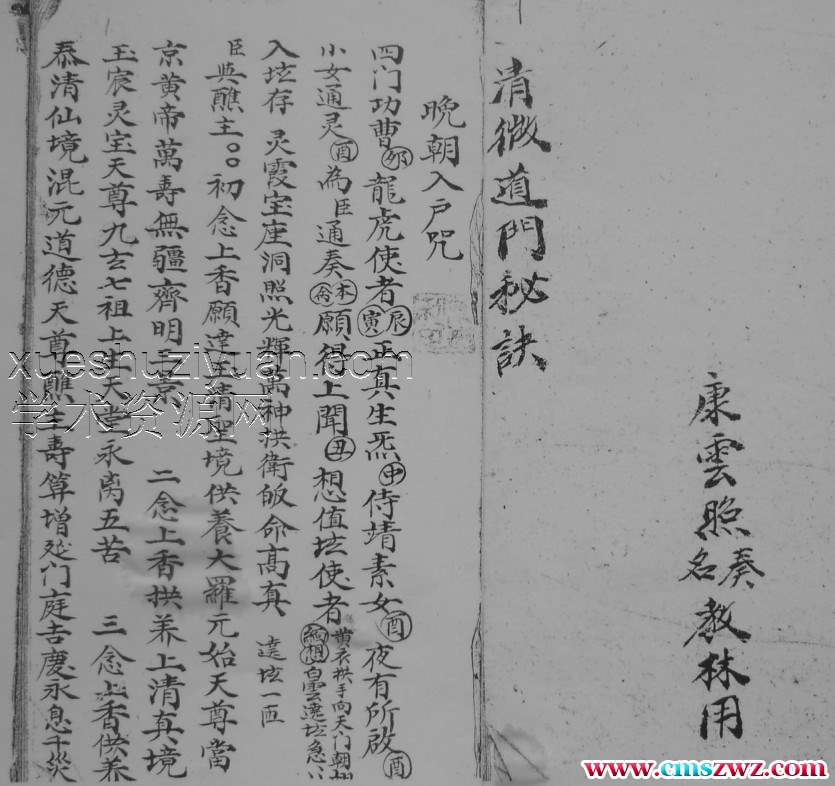 康雲照
奏名
教林用
清微道門秘訣
晚朝入户咒
四门功曹卯龍虎使者辰寅正真生炁申侍靖素女酉夜有所啟酉
小女通灵酉為臣通奏本命願得上聞丑想值坛使者黄衣拱手向天门朝 白雲遶坛急
入坛存 灵霞宝座洞照光輝萬神拱衛皈命高真 遶坛一匝
臣與醮主〇〇初念上香願達玉清聖境供養大羅元始天尊當
京黄帝萬壽無疆齊明三景 二念上香拱养上清真境
玉宸灵宝天尊九玄七祖上生天堂永离五苦 三念上香供养
泰清仙境混元道德天尊醮主壽算增延门庭吉慶永息千災
xueshuziyuan.com
学术资源网
www.cmszwz.com